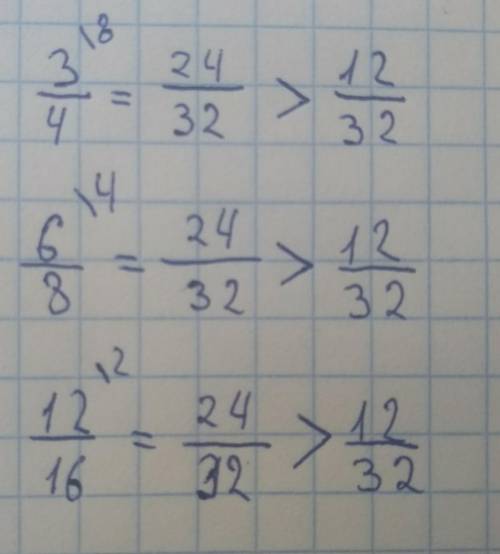 3/4 \8 = 24/32 > 12/32
6/8 \4 = 24/32 > 12/32
12/16 \2 = 24/32 > 12/32